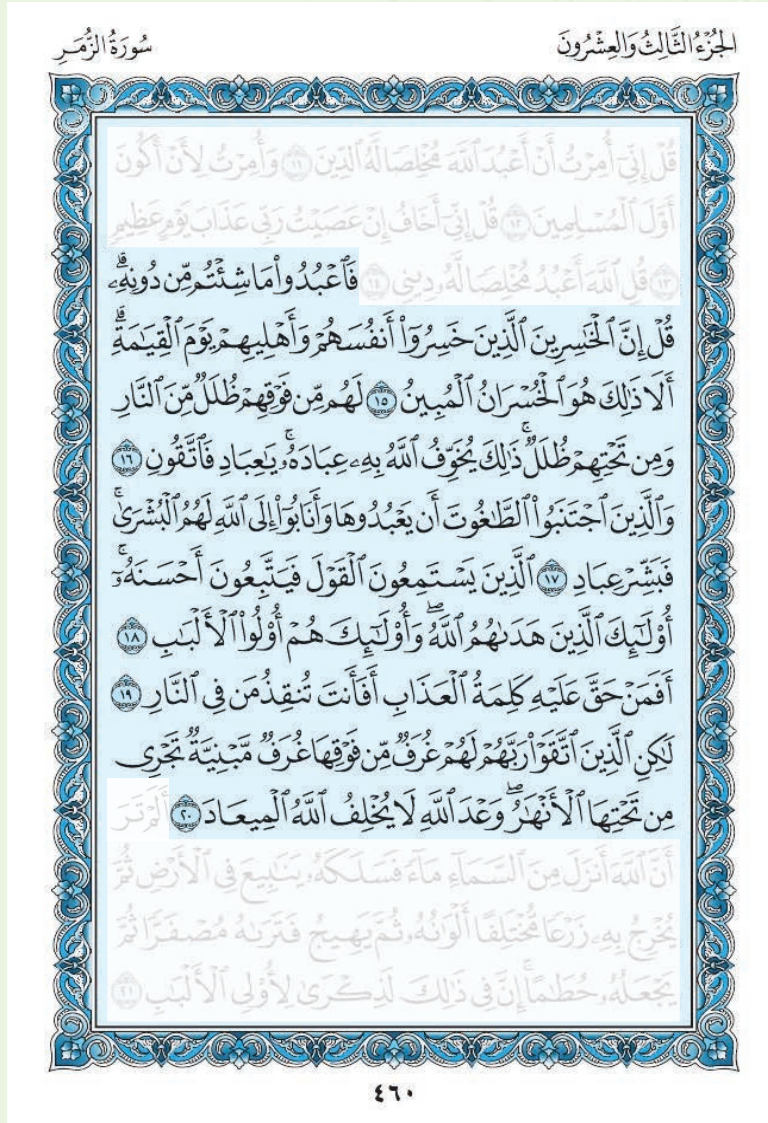 سُورَةُ الزُّمَرِ
الجُزْءُ الثَّالِثُ وَالعِشْرُونَ
قُلْ إِنِّيٓ أُمِرْتُ أَنْ أَعْبُدَ ٱللَّهَ مُخْلِصًا لَّهُ ٱلدِّينَ ١١ وَأُمِرْتُ لِأَنْ أَكُونَ
أَوَّلَ ٱلْمُسْلِمِينَ ١٢ قُلْ إِنِّيٓ أَخَافُ إِنْ عَصَيْتُ رَبِّي عَذَابَ يَوْمٍ عَظِيمٍ
١٣ قُلِ ٱللَّهَ أَعْبُدُ مُخْلِصًا لَّهُۥ دِينِي ١٤ فَٱعْبُدُوا۟ مَا شِئْتُم مِّن دُونِهِۦ ۗ
قُلْ إِنَّ ٱلْخَٰسِرِينَ ٱلَّذِينَ خَسِرُوٓا۟ أَنفُسَهُمْ وَأَهْلِيهِمْ يَوْمَ ٱلْقِيَٰمَةِ ۗ
أَلَا ذَٰلِكَ هُوَ ٱلْخُسْرَانُ ٱلْمُبِينُ ١٥ لَهُم مِّن فَوْقِهِمْ ظُلَلٌ مِّنَ ٱلنَّارِ
وَمِن تَحْتِهِمْ ظُلَلٌ ۚ ذَٰلِكَ يُخَوِّفُ ٱللَّهُ بِهِۦ عِبَادَهُۥ ۚ يَٰعِبَادِ فَٱتَّقُونِ ١٦
وَٱلَّذِينَ ٱجْتَنَبُوا۟ ٱلطَّٰغُوتَ أَن يَعْبُدُوهَا وَأَنَابُوٓا۟ إِلَى ٱللَّهِ لَهُمُ ٱلْبُشْرَىٰ ۚ
فَبَشِّرْ عِبَادِ ١٧ ٱلَّذِينَ يَسْتَمِعُونَ ٱلْقَوْلَ فَيَتَّبِعُونَ أَحْسَنَهُۥٓ ۚ
أُو۟لَٰٓئِكَ ٱلَّذِينَ هَدَىٰهُمُ ٱللَّهُ ۖ وَأُو۟لَٰٓئِكَ هُمْ أُو۟لُوا۟ ٱلْأَلْبَٰبِ ١٨
أَفَمَنْ حَقَّ عَلَيْهِ كَلِمَةُ ٱلْعَذَابِ أَفَأَنتَ تُنقِذُ مَن فِي ٱلنَّارِ ١٩
لَٰكِنِ ٱلَّذِينَ ٱتَّقَوْا۟ رَبَّهُمْ لَهُمْ غُرَفٌ مِّن فَوْقِهَا غُرَفٌ مَّبْنِيَّةٌ تَجْرِي
مِن تَحْتِهَا ٱلْأَنْهَٰرُ ۖ وَعْدَ ٱللَّهِ لَا يُخْلِفُ ٱللَّهُ ٱلْمِيعَادَ ٢٠ أَلَمْ تَرَ
أَنَّ ٱللَّهَ أَنزَلَ مِنَ ٱلسَّمَآءِ مَآءً فَسَلَكَهُۥ يَنَٰبِيعَ فِي ٱلْأَرْضِ ثُمَّ
يُخْرِجُ بِهِۦ زَرْعًا مُّخْتَلِفًا أَلْوَٰنُهُۥ ثُمَّ يَهِيجُ فَتَرَىٰهُ مُصْفَرًّا ثُمَّ
يَجْعَلُهُۥ حُطَٰمًا ۚ إِنَّ فِي ذَٰلِكَ لَذِكْرَىٰ لِأُو۟لِي ٱلْأَلْبَٰبِ ٢١
٤٦٠